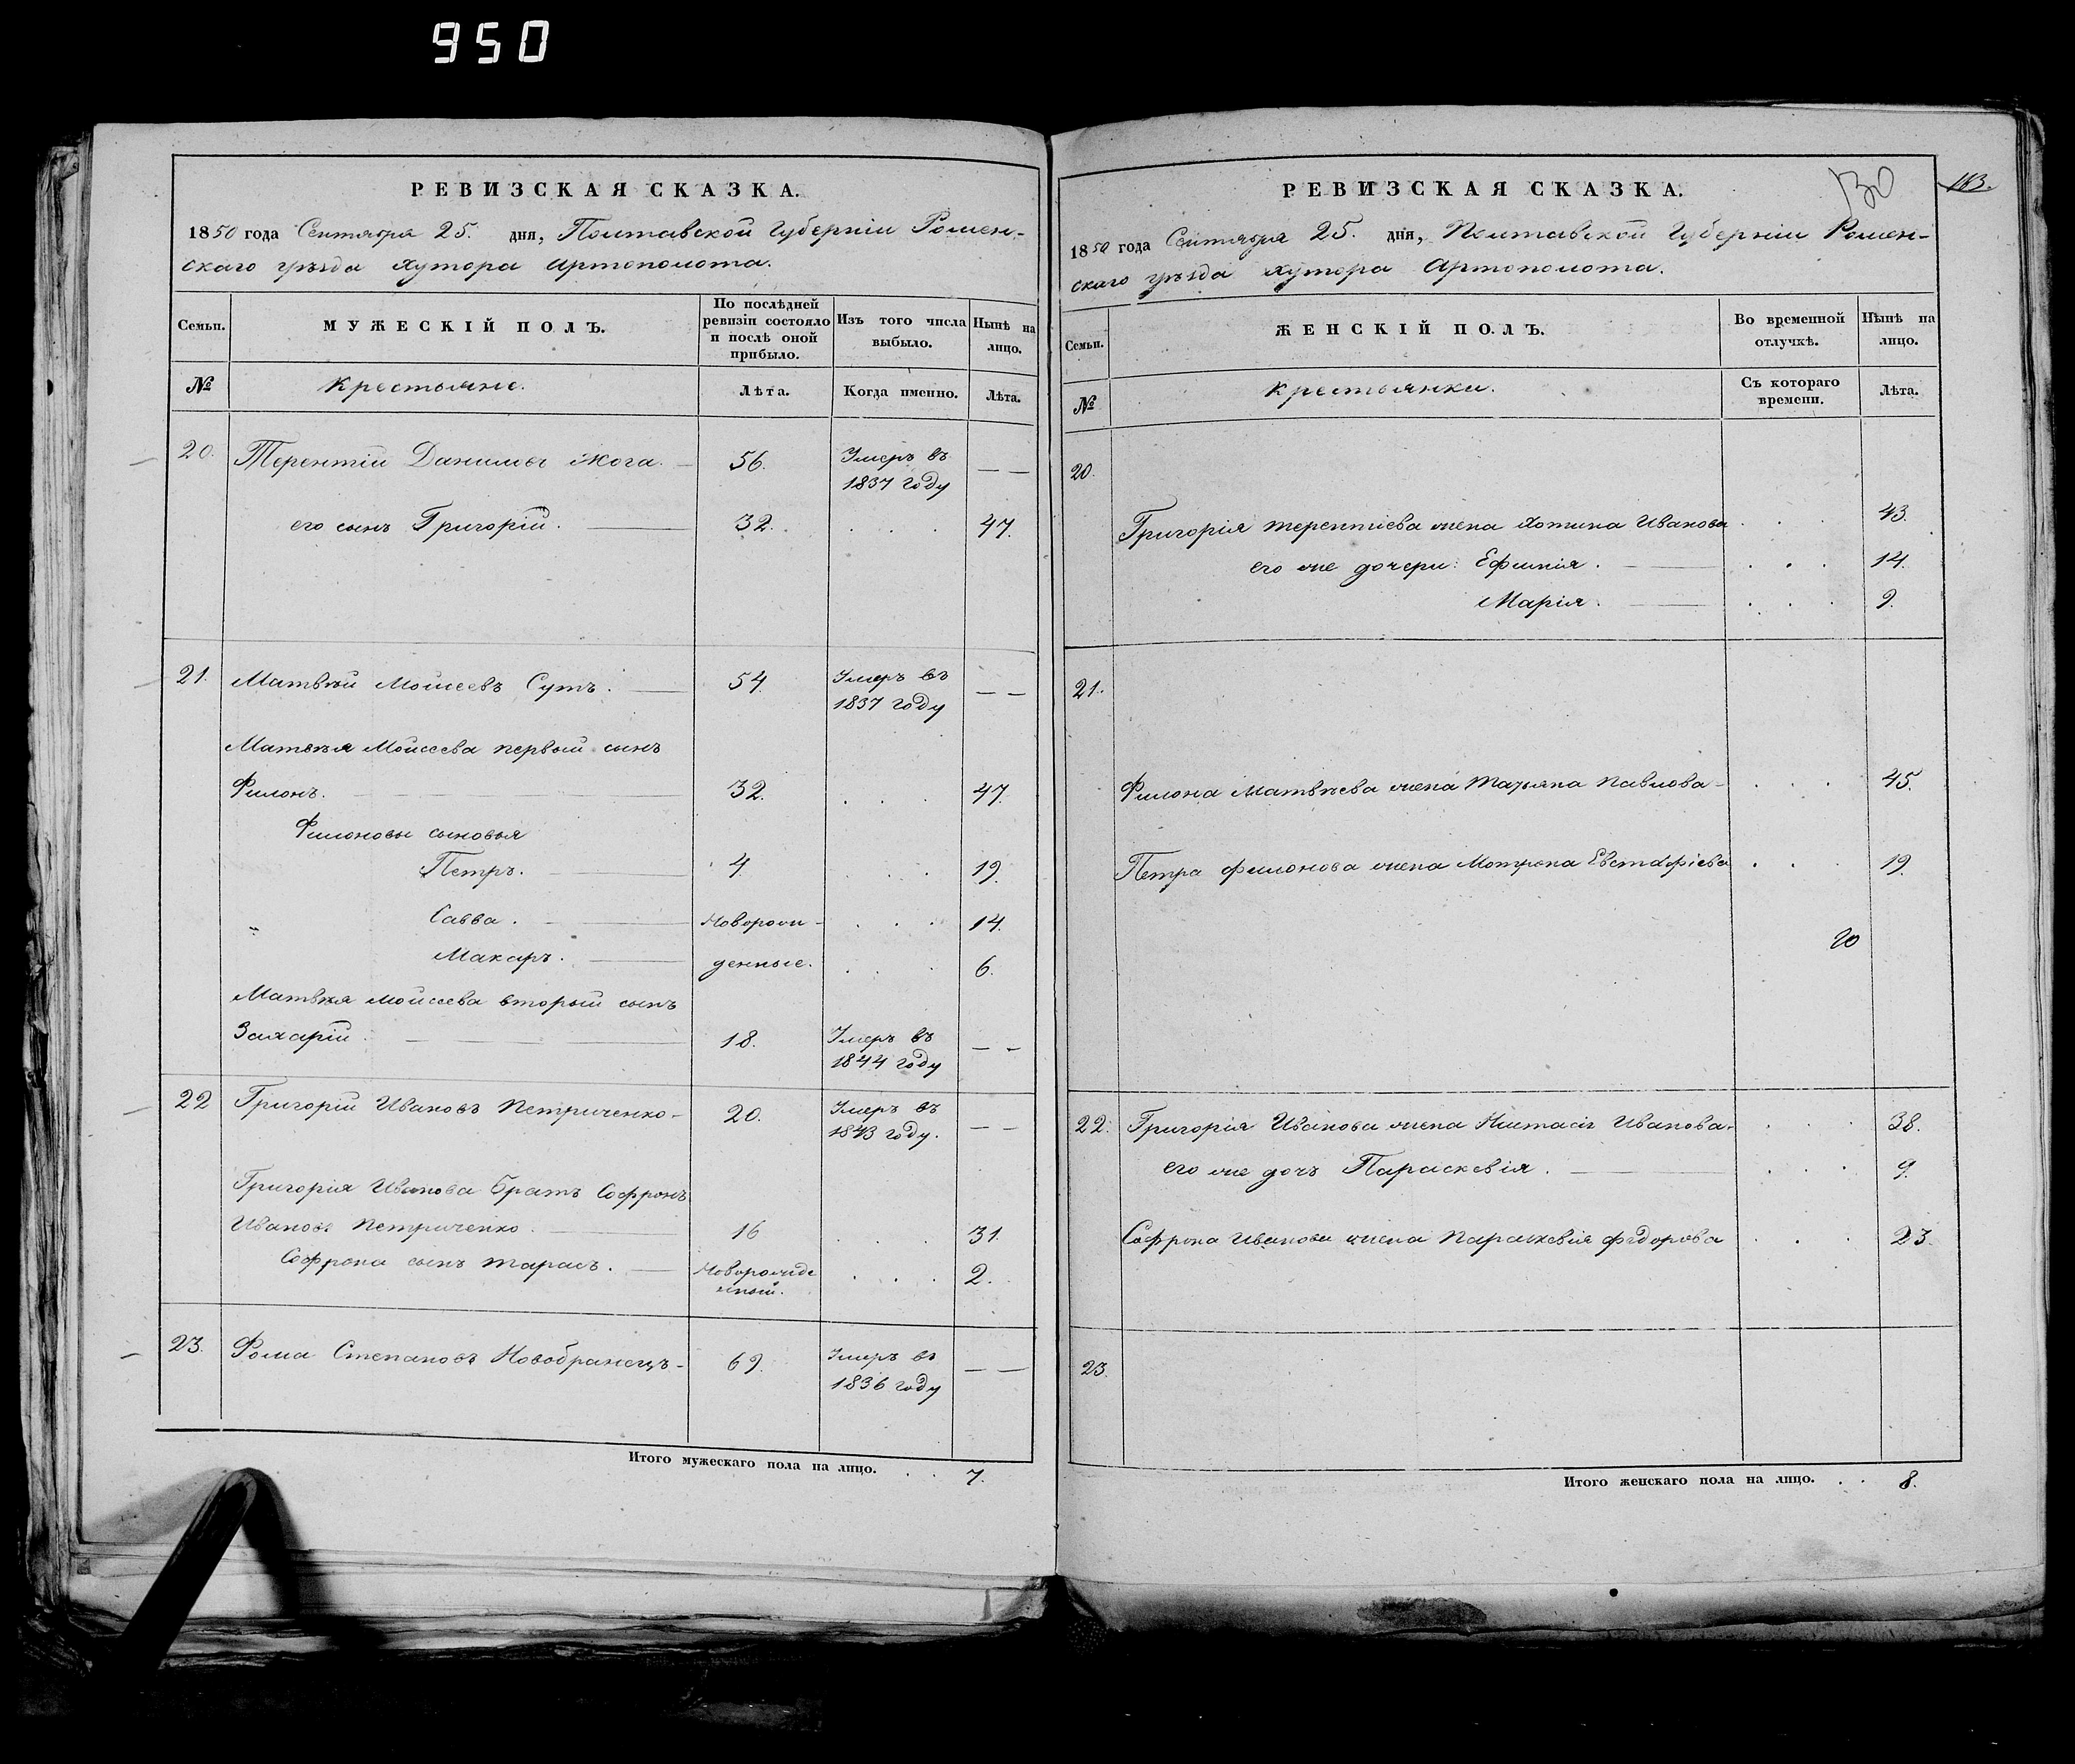 950
РЕВИЗСКАЯ СКАЗКА.
1850 года Сентября 25. дня, Полтавской Губерніи Ромен-
скаго уѣзда хутора Артополота.
Семьи.
МУЖЕСКІЙ ПОЛЪ.
По послѣдней ревизіи состояло и послѣ оной прибыло.
Изъ того числа выбыло.
Нынѣ на лицо.
№
Крестьяне.
Лѣта.
Когда именно.
Лѣта.
20. Терентій Даниловъ Жога. 56. Умеръ въ 1837 году — —
его сынъ Григорій. 32. . . . 47.
21. Матвѣй Моисеевъ Сутъ. 54. Умеръ въ 1837 году — —
Матвѣя Моисеева первый сынъ
Филонъ. 32. . . . 47.
Филоновы сыновья
Петръ. 4. . . . 19.
Савва. Новорож- . . . 14.
Макаръ. денные. . . . 6.
Матвѣя Моисеева вторый сынъ
Захарій. 18. Умеръ въ 1844 году — —
22 Григорій Ивановъ Петриченко- 20. Умеръ въ 1843 году. — —
Григорія Иванова братъ Софронъ
Ивановъ Петриченко 16 . . . 31.
Софрона сынъ Тарасъ. Новорожде нный. . . . 2.
23. Фома Степановъ Новобранецъ- 69. Умеръ въ 1836 году — —
Итого мужескаго пола на лицо. . . 7.
РЕВИЗСКАЯ СКАЗКА.
130
113.
1850 года Сентября 25. дня, Полтавской Губерніи Ромен-
скаго уѣзда хутора Артополота.
Семьи.
ЖЕНСКІЙ ПОЛЪ.
Во временной отлучкѣ.
Нынѣ на лицо.
№
Крестьянки.
Съ котораго времени.
Лѣта.
20.
Григорія Терентіева жена Хотина Иванова . . . 43.
его же дочери: Ефимія. . . . 14.
Марія. . . . 9.
21.
Филона Матвѣева жена Татьяна Павлова- . . . 45.
Петра Филонова жена Мотрона Евстафіева . . . 19.
20
22. Григорія Иванова жена Настасія Иванова. . . . 38.
его же дочь Парасковія. . . . 9.
Софрона Иванова жена Парасковія Федорова . . . 23.
23.
Итого женскаго пола на лицо. . . 8.